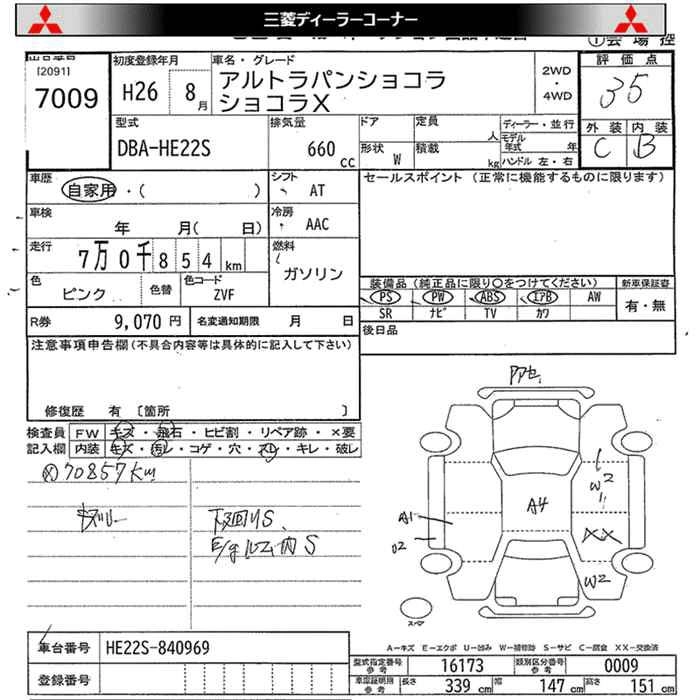 三菱ディーラーコーナー
[2091]
7009
初度登録年月
H26 8月
車名・グレード
アルトラパンショコラ
ショコラX
2WD
・
4WD
評価点
35
外装 内装
C B
型式
DBA-HE22S
排気量
660 cc
ドア
形状 W
定員 人
積載 kg
ディーラー・並行
モデル年式 年
ハンドル 左・右
車歴
自家用・( )
シフト
AT
セールスポイント (正常に機能するものに限ります)
車検
年 月( 日)
冷房
AAC
走行
7万0千854km
燃料
ガソリン
色
ピンク
色替
色コード
ZVF
装備品(純正品に限り〇をつけてください)
新車保証書
PS PW ABS エアB AW
有・無
SR ナビ TV カワ
R券 9,070円
名変通知期限 月 日
後日品
注意事項申告欄(不具合内容等は具体的に記入して下さい)
修復歴 有 〔箇所 〕
検査員
記入欄
FW キズ・飛石・ヒビ割・リペア跡・×要
内装 キズ・汚レ・コゲ・穴・スレ・キレ・破レ
70857km
下回りS、
E/gルーム内S
A4
A1
U2
W2
XX
W2
A-キズ E-エクボ U-凹み W-補修跡 S-サビ C-腐食 XX-交換済
車台番号 HE22S-840969
登録番号
型式指定番号 参考 16173
類別区分番号 参考 0009
車庫証明用 参考
長さ 339cm 幅 147cm 高さ 151cm